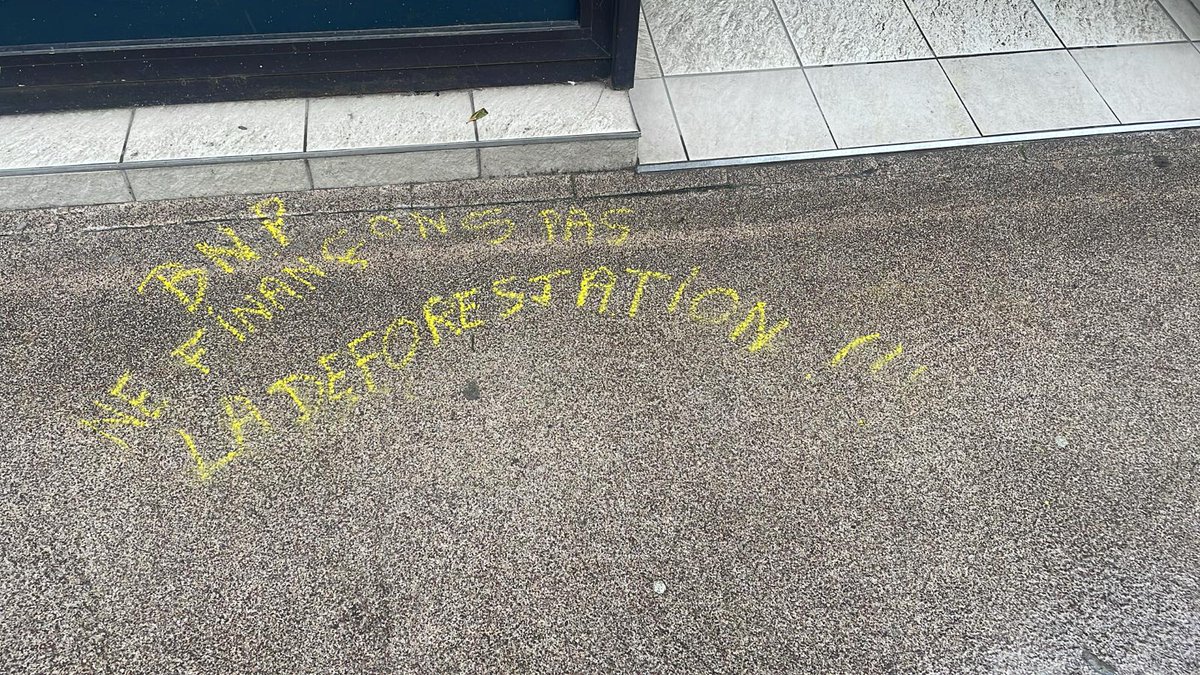 BNP
NE FINANÇONS PAS
LA DEFORESTATION !!!